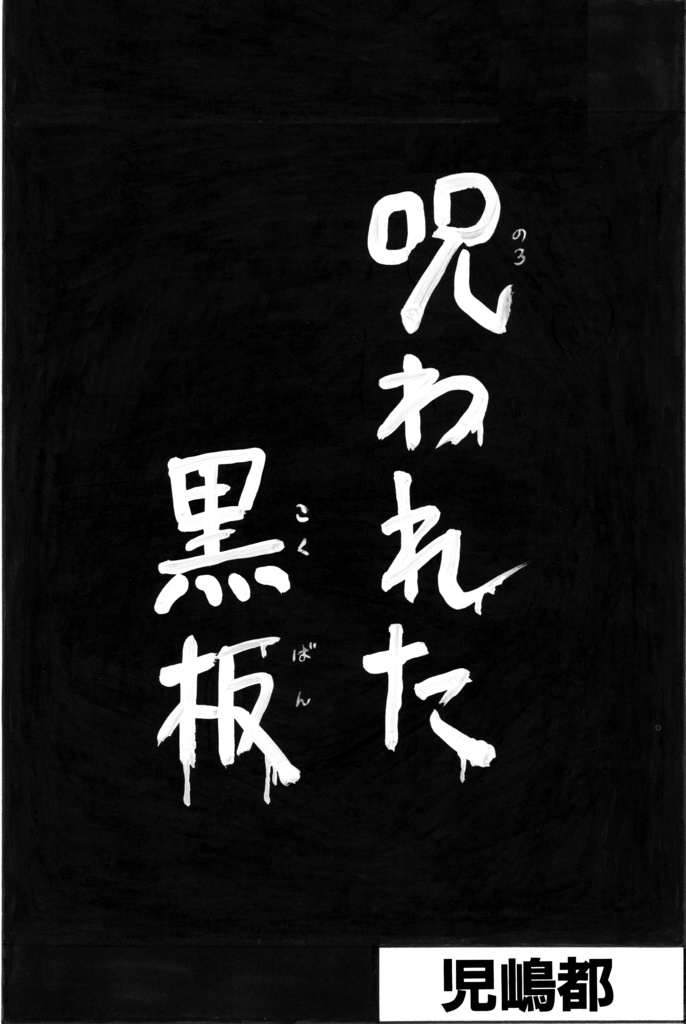 呪われた
のろ
黒板
こくばん
児嶋都